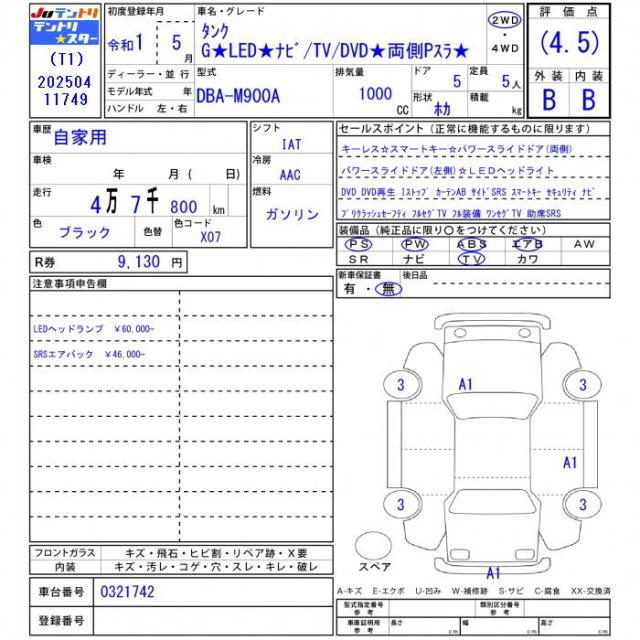 JUテントリ
テントリ★スター
(T1)
202504
11749
初度登録年月
令和1 5月
ディーラー・並行
モデル年式 年
ハンドル 左・右
車名・グレード
ﾀﾝｸ
G★LED★ﾅﾋﾞ/TV/DVD★両側Pｽﾗ★
2WD
・
4WD
型式
DBA-M900A
排気量
1000
CC
ドア
5
定員
5人
形状
ﾎｶ
積載
kg
評価点
(4.5)
外装 内装
B B
車歴
自家用
車検
年 月 ( 日)
走行
4万 7千 800 km
色
ブラック
色替
色コード
X07
シフト
IAT
冷房
AAC
燃料
ガソリン
R券 9,130 円
セールスポイント(正常に機能するものに限ります)
キーレス☆スマートキー☆パワースライドドア(両側)
パワースライドドア(左側)☆LEDヘッドライト
DVD DVD再生 Iストップ カーテンAB サイドSRS スマートキー セキュリティ ナビ
プリクラッシュセーフティ フルセグTV フル装備 ワンセグTV 助席SRS
装備品(純正品に限り〇をつけてください)
PS PW ABS エアB AW
SR ナビ TV カワ
新車保証書
有・無
後日品
注意事項申告欄
LEDヘッドランプ ￥60,000-
SRSエアバック ￥46,000-
3
A1
3
A1
3
3
スペア
A1
フロントガラス キズ・飛石・ヒビ割・リペア跡・X要
内装 キズ・汚レ・コゲ・穴・スレ・キレ・破レ
車台番号 0321742
登録番号
A-キズ E-エクボ U-凹み W-補修跡 S-サビ C-腐食 XX-交換済
型式指定番号
参考
類別区分番号
参考
車庫証明用
参考
長さ cm
幅 cm
高さ cm